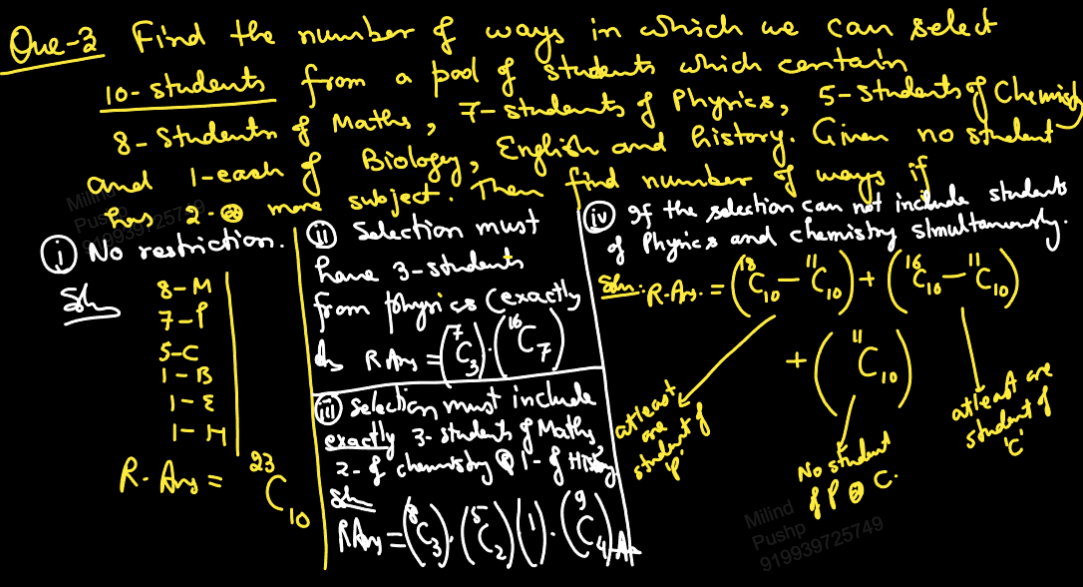 Que-3 Find the number of ways in which we can select
10-students from a pool of students which contain
8-Students of Maths, 7-students of Physics, 5-students of Chemistry
and 1-each of Biology, English and history. Given no student
has 2- more subject. Then find number of ways if
(i) No restriction.
Sln
8-M
7-P
5-C
1-B
1-E
1-H
R. Ans = ²³C₁₀
(ii) Selection must
have 3-students
from physics (exactly
R Ans = (⁷C₃).(¹⁶C₇)
(iii) Selection must include
exactly 3-students of Maths,
2-of chemistry 1-of History
Sln
R Ans = (⁸C₃).(⁵C₂)(1).(⁹C₄)
(iv) If the selection can not include students
of Physics and chemistry simultaneously.
Soln: R. Ans. = (¹⁸C₁₀ - ¹¹C₁₀) + (¹⁶C₁₀ - ¹¹C₁₀)
+ (¹¹C₁₀)
atleast
one
student of
'P'
No student
of P C.
atleast one
student of
'C'
Milind
Pushp
919939725749
Milind
Pushp
919939725749